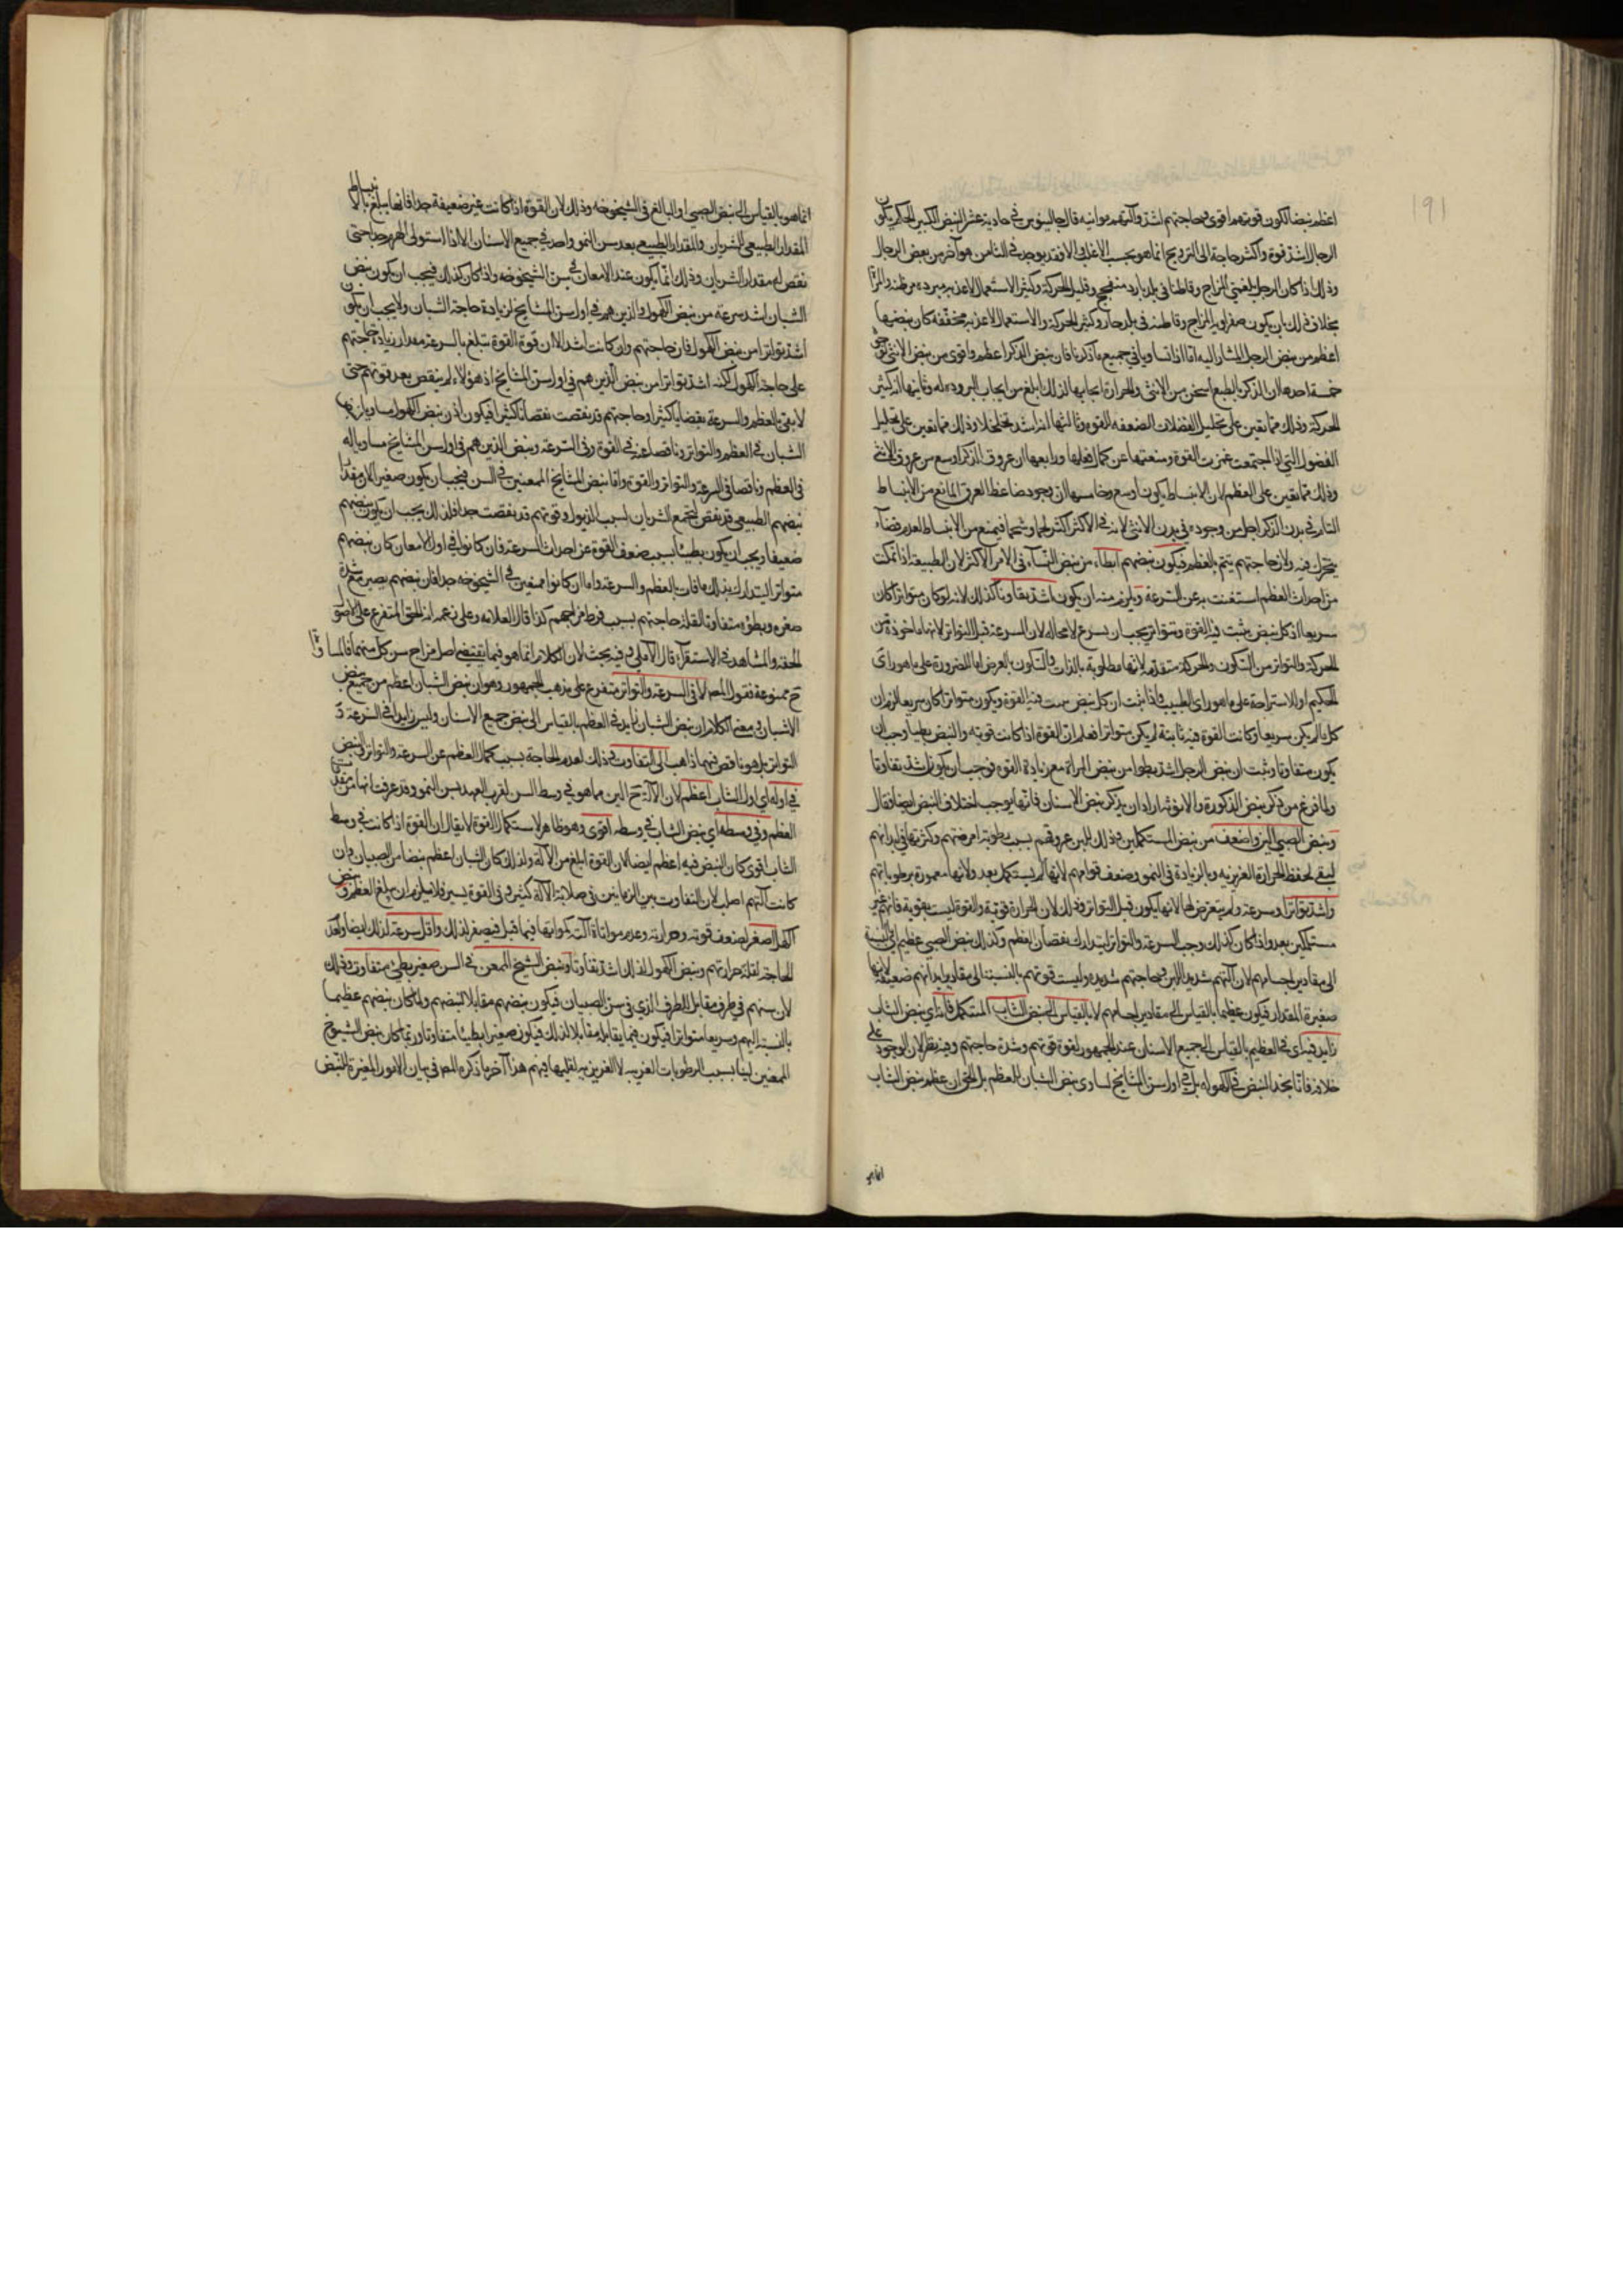 ١٩١
اعظم نبضا لكون قوتهم اقوى وحاجتهم اشد وآلتهم مواتيه قال جالينوس في حادية عشر النبض الكبير الحكم بكون
الرجال اشد قوة واكثر حاجة الى الترويح انما هو بحسب الاغلب والا فقد يوجد في الناس من هو آخر من بعض الرجال
وذلك اذا كان الرجل بلغمي المزاج وقاطنا في بلد بارد وقليل الحركة وكثير الاستعمال لاغذيه مبرده مرطبة والمرأة
بخلاف ذلك بان يكون صفراوية المزاج وقاطنة في بلد حار وكثير الحركة والاستعمال لاغذيه مجففة كان نبضها
اعظم من نبض الرجل المشار اليه اما اذا تساويا في جميع ما ذكرنا فان نبض الذكر اعظم واقوى من نبض الانثى لوجوه
خمسة احدها ان الذكر بالطبع اسخن من الانثى والحرارة ايجابها لذلك ابلغ من ايجاب البرودة له وثانيها انه كثير
الحركة وذلك مما يعين على تحليل الفضلات المضعفه للقوة وثالثها انه اشد تخلخلا وذلك مما يعين على تحليل
الفضول التي اذا اجتمعت غمرت القوة ومنعتها عن كمال فعلها ورابعها ان عروق الذكر اوسع من عروق الانثى
وذلك مما يعين على العظم لان الانبساط يكون اوسع وخامسها ان وجود ضاغط العرق المانع من الانبساط
التام في بدن الذكر اقل من وجوده في بدن الانثى لانه في الاكثر اكثر لحما وشحما فيمنع من الانبساط لعدم فضاء
يتحرك فيه ولان حاجتهم يتم بالعظم فيكون نبضهم ابطاء من نبض النساء في الامر الاكثر لان الطبيعة اذا تمكنت
من احداث العظم استغنت به عن السرعة ويلزم منه ان يكون اشد تفاوتا كذلك لانه لو كان متواترا كان
سريعا اذ كل نبض يثبت فيه القوة ويتواتر يجب ان يسرع لا محاله لان السرعة قبل التواتر لانها ماخوذة من
الحركة والتواتر من السكون والحركة متقدمة لانها مطلوبة بالذات والسكون بالعرض اما للضرورة على ما هو راى
الحكيم او للاستراحة على ما هو راى الطبيب واذا ثبت ان كل نبض يثبت فيه القوة ويكون متواترا كان سريعا لزم ان
كل ما لم يكن سريعا وكانت القوة فيه ثابتة لم يكن متواترا فعلم ان القوة اذا كانت قوية والنبض بطيا وجب ان
يكون متفاوتا وثبت ان نبض الرجل اشد بطوا من نبض المراة مع زيادة القوة فوجب ان يكون اشد تفاوتا
ولما فرغ من ذكر نبض الذكورة والانوثة اراد ان يذكر نبض الاسنان فانها يوجب اختلاف النبض ايضا فقال
ونبض الصبي الين واضعف من نبض المستكملين وذلك للين عروقهم بسبب رطوبة امزجتهم وكثرتها في ابدانهم
لتبقى لحفظ الحرارة الغريزيه وبالزيادة في النمو وضعف قواهم لانها لم يستكمل بعد ولانها مغمورة برطوباتهم
واشد تواترا وسرعة ولم يتعرض لها لانها يكون قبل التواتر وذلك لان الحرارة قوية والقوة ليست بقوية فانهم غير
مستكملين بعد واذا كان كذلك وجب السرعة والتواتر ليتدارك نقصان العظم وكذلك نبض الصبي عظيم بالنسبة
الى مقادير اجسامهم لان آلتهم شديدة اللين وحاجتهم شديده وليست قوتهم بالنسبة الى مقادير ابدانهم ضعيفة لانها
صغيرة المقدار فيكون عظيما بالقياس الى مقادير اجسامهم لا بالقياس الى نبض الشاب المستكمل فانه اي نبض الشاب
زايد فيه اى في العظيم بالقياس الى جميع الاسنان عند الجمهور لقوة قوتهم وشدة حاجتهم وفيه نظر لان الوجود على
خلافه فانا نجد النبض في الكهوله بل في اول سن المشايخ يساوى نبض الشبان بالعظم بل الحق ان عظم نبض الشاب
انما هو
انما هو بالقياس الى نبض الصبي او البالغ في الشيخوخه وذلك لان القوة اذا كانت غير ضعيفة جدا فانها يبلغ بالانبساط
المقدار الطبيعي للشريان والمقدار الطبيعي بعد سن النمو واحد في جميع الاسنان الا اذا استولى الهرم جدا حتى
نقص له مقدار الشريان وذلك انما يكون عند الامعان في سن الشيخوخه واذا كان كذلك فيجب ان يكون نبض
الشبان اشد سرعة من نبض الكهول والذين هم في اول سن المشايخ لزيادة حاجة الشبان ولا يجب ان يكون
اشد تواترا من نبض الكهول فان حاجتهم وان كانت اشد الا ان قوة القوة تبلغ بالسرعة مقدار زيادة حاجتهم
على حاجة الكهول لكنه اشد تواترا من نبض الذين هم في اول سن المشايخ اذ هؤلاء لم ينقص بعد قوتهم حتى
لا يفي بالعظم والسرعة نقصانا كثيرا وحاجتهم قد نقصت نقصانا كثيرا فيكون اذن نبض الكهول مساويا لنبض
الشبان في العظم والتواتر وناقصا عنه في القوة وفي السرعة ونبض الذين هم في اول سن المشايخ مساويا له
في العظم وناقصا في السرعة والتواتر والقوة واما نبض المشايخ الممعنين في السن فيجب ان يكون صغيرا لان مقدار
نبضهم الطبيعي قد نقص لتجمع الشريان بسبب الذبول وقوتهم قد نقصت جدا فلذلك يجب ان يكون نبضهم
ضعيفا ويجب ان يكون بطيئا بسبب ضعف القوة عن احداث السرعة فان كانوا في اول الامعان كان نبضهم
متواترا ليتدارك بذلك ما فات بالعظم والسرعة واما ان كانوا ممعنين في الشيخوخه جدا فان نبضهم يصير مع شدة
صغره وبطؤه متفاوتا لقلة حاجتهم بسبب فرط مزاجهم كذا قال العلامه وعلى زعمه انه الحق المتفرع على الاصول
الحقة والمشاهد في الاستقراء قال الآملي وفيه بحث لان الكلام انما هو فيما يقتضى اصل مزاج سن كل منهما فالمساواة
ح ممنوعة فقول المص لا في السرعة والتواتر متفرع على مذهب الجمهور وهو ان نبض الشبان اعظم من جميع نبض
الاسنان ومعنى الكلام ان نبض الشبان زايد في العظم بالقياس الى نبض جميع الاسنان وليس زايدا في السرعة و
التواتر بل هو ناقص فيهما ذاهب الى التفاوت وذلك لعدم الحاجة بسبب كمال العظم عن السرعة والتواتر والنبض
في اوله اي اول الشاب اعظم لان الآلة ح الين مما هو في وسط السن لقرب العهد بسن النمو وقد عرفت انها من
العظم وفي وسطه اي نبض الشاب في وسطه اقوى وهو ظاهر لاستكمال القوة لا يقال ان القوة اذا كانت في وسط
الشاب اقوى كان النبض فيه اعظم ايضا لان القوة ابلغ من الآلة ولذلك كان الشبان اعظم نبضا من الصبيان وان
كانت آلتهم اصلب لان التفاوت بين الزمانين في صلابة الآلة كثير وفي القوة يسير فلا يلزم ان يبلغ العظم ونبض
الكهل اصغر لضعف قوته وحرارته وعدم مواتاة آلته كمواتاتها فيما قبل فيصغر لذلك واقل سرعة لذلك ايضا ولعدم
الحاجة لقلة حرارتهم ونبض الكهول لذلك اشد تفاوتا ونبض الشيخ الممعن في السن صغير بطئ متفاوت وذلك
لان سنهم في طرف مقابل للطرف الذي في سن الصبيان فيكون نبضهم مقابلا لنبضهم ولما كان نبضهم عظيما
بالنسبة اليهم وسريعا متواترا فيكون فيما يقابله مقابلا لذلك فيكون صغيرا بطيئا متفاوتا وربما كان نبض الشيوخ
الممعنين لينا بسبب الرطوبات الغريبه لا الغريزيه لقلتها فيهم هذا آخر ما ذكره المص في بيان الامور المغيرة للنبض